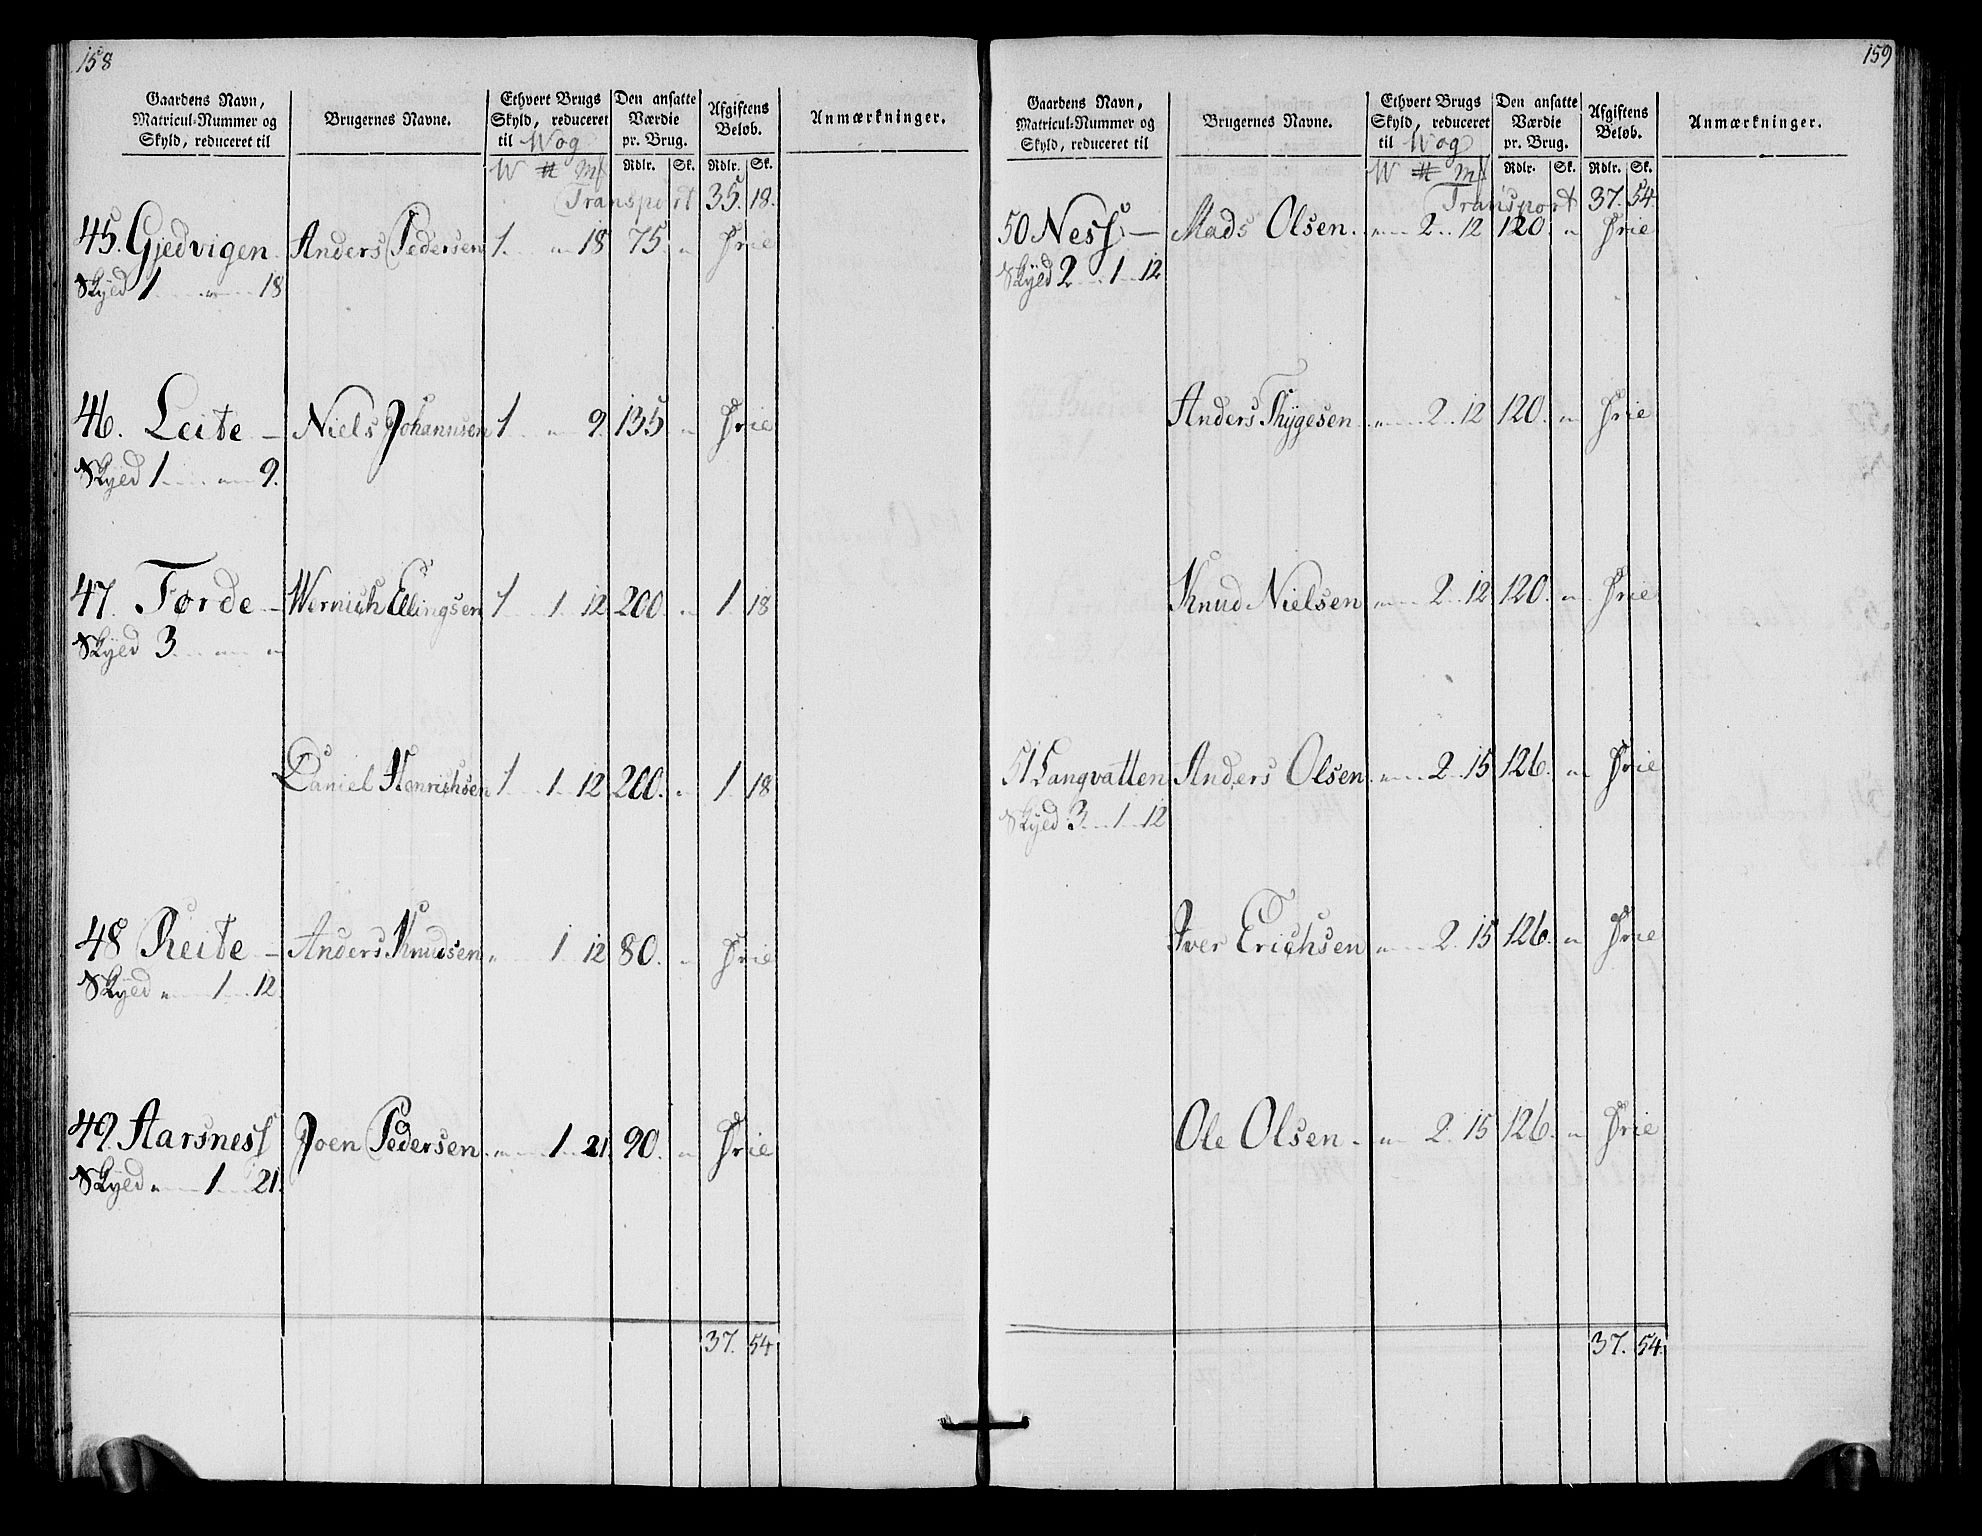 158
Gaardens Navn, Matricul-Nummer og Skyld, reduceret til | Brugernes Navne. | Ethvert Brugs Skyld, reduceret til Wog | Den ansatte Værdie pr. Brug. | Afgiftens Beløb. | Anmærkninger.
W # Mk | Rdlr. | Sk. | Rdlr. | Sk.
Transport 35. 18.
45. Gjedvigen Anders Pedersen 1. „ 18 75 „ Frie
Skyld 1 „ 18
46. Leite – Niels Johannsen 1 „ 9. 135 „ Frie
Skyld 1 „ 9.
47. Førde – Wernich Ellingsen 1 1 12 200 „ 1 18
Skyld 3 „ „
Daniel Henrichsen 1 1 12 200. „ 1 18
48 Reite – Anders Knudsen „ 1 12 80. „ Frie
Skyld „ 1 12
49. Aarsness Joen Pedersen „ 1 21 90. „ Frie
Skyld „ 1 21.
37. 54
159
Gaardens Navn, Matricul-Nummer og Skyld, reduceret til | Brugernes Navne. | Ethvert Brugs Skyld, reduceret til Wog | Den ansatte Værdie pr. Brug. | Afgiftens Beløb. | Anmærkninger.
W # Mk | Rdlr. | Sk. | Rdlr. | Sk.
Transport 37. 54
50 Ness – Mads Olsen. „ 2 12 120 „ Frie
Skyld 2 1 12
Anders Thygesen „ 2 12 120. „ Frie
Knud Nielsen „ 2 12 120. „ Frie
51 Langvatten Anders Olsen „ 2 15 126. „ Frie
Skyld 3 1 12
Iver Erichsen „ 2 15 126. „ Frie
Ole Olsen „ 2 15 126. „ Frie
37. 54.